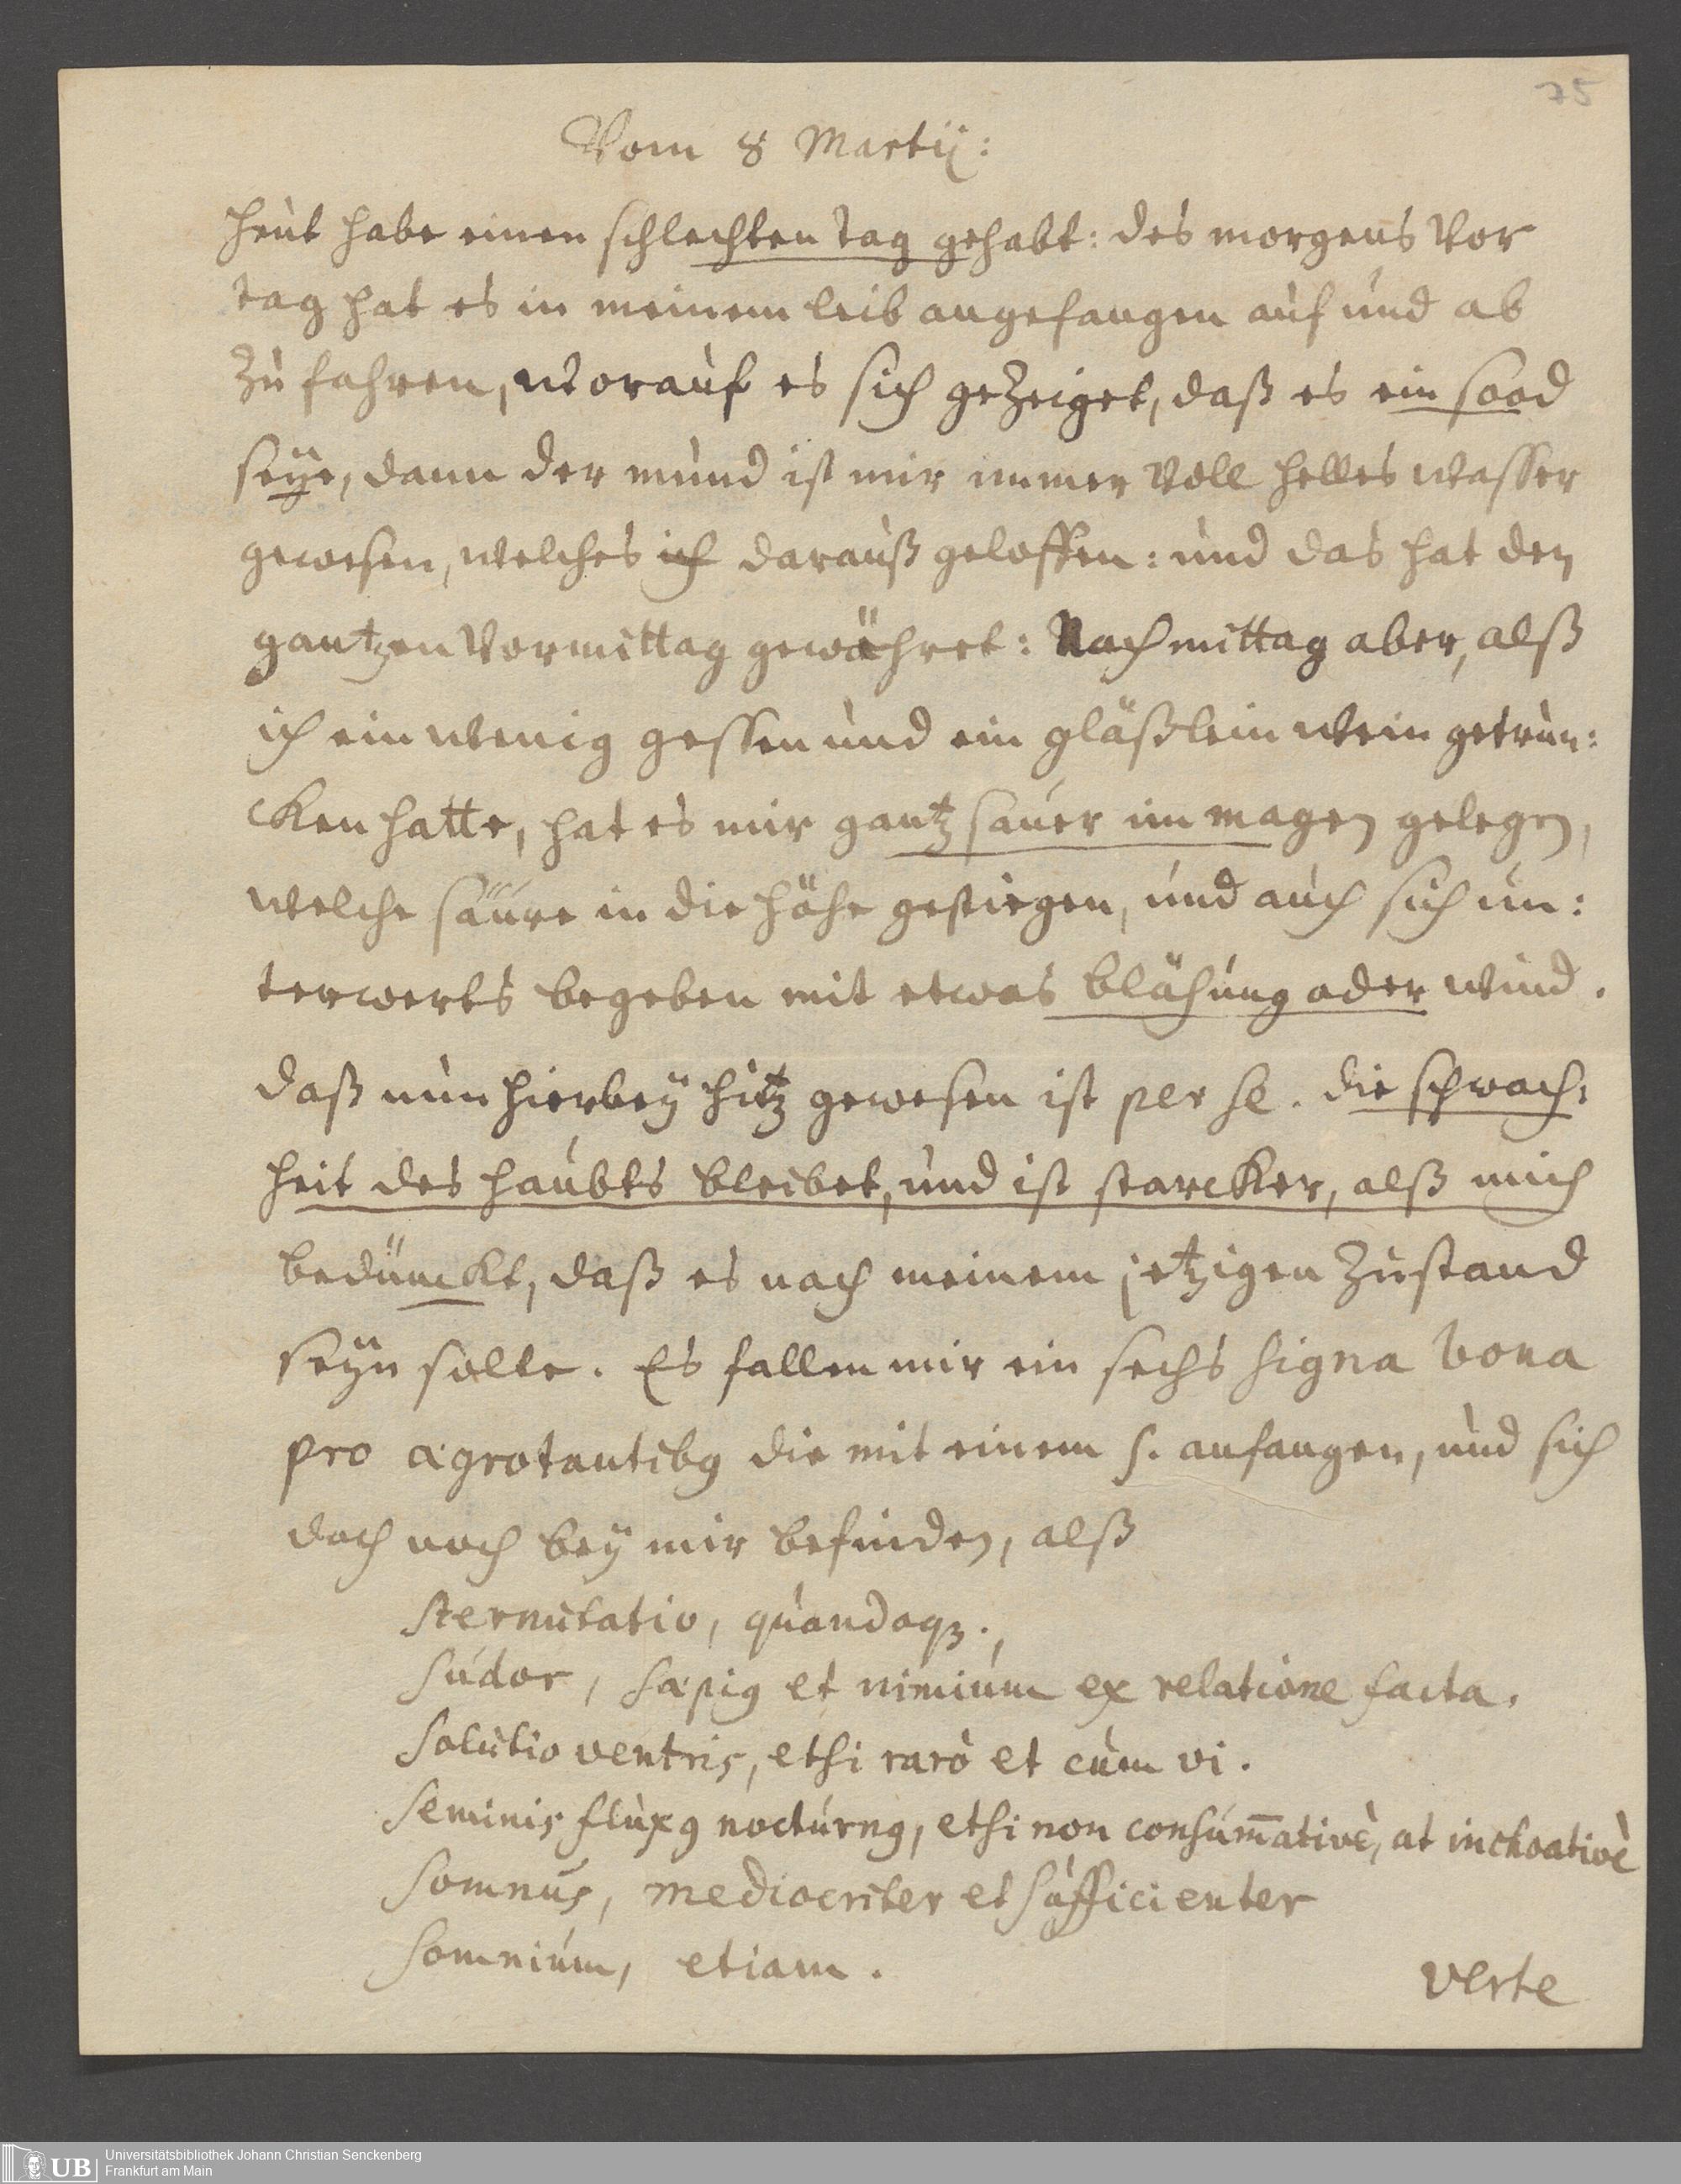 75
Vom 8 Martij:
heut habe einen schlechten tag gehabt: des morgens Vor
tag hat es in meinem leib angefangen auf und ab
zu fahren, worauf es sich gezeiget, daß es ein sood
seÿe, dann der mund ist mir immer Voll helles wasser
gewesen, welches ich darauß geloffen: und das hat den
gantzen Vormittag gewähret: Nachmittag aber, alß
ich ein wenig gessen und ein gläßlein wein getrun:
cken hatte, hat es mir gantz sauer im magen gelegen,
welche säure in die höhe gestiegen, und auch sich un:
terwerts begeben mit etwas blähung oder wind.
daß nun hierbeÿ hitz gewesen ist per se. die schwach:
heit des haubts bleibet, und ist starcker, alß mich
bedünckt, daß es nach meinem jetzigen zustand
seÿn solle. Es fallen mir ein sechs signa bona
pro ægrotantibꝰ die mit einem s. anfangen, und sich
doch noch beÿ mir befinden, alß
sternutatio, quandoqꝫ.,
sudor, sæpiꝰ et nimium ex relatione facta.
solutio ventris, etsi rarò et cum vi.
seminis fluxꝰ nocturnꝰ, etsi non consum̄ativè, at inchoativè
somnus, mediocriter et sufficienter
somnium, etiam.
verte
UB
Universitätsbibliothek Johann Christian Senckenberg
Frankfurt am Main